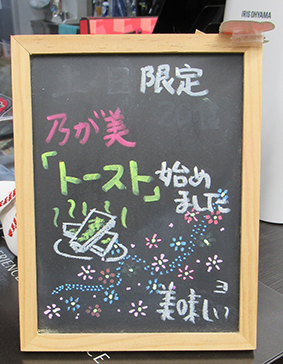 IRIS OHYAMA
限定
乃が美
「トースト」始め
ました
美味しい